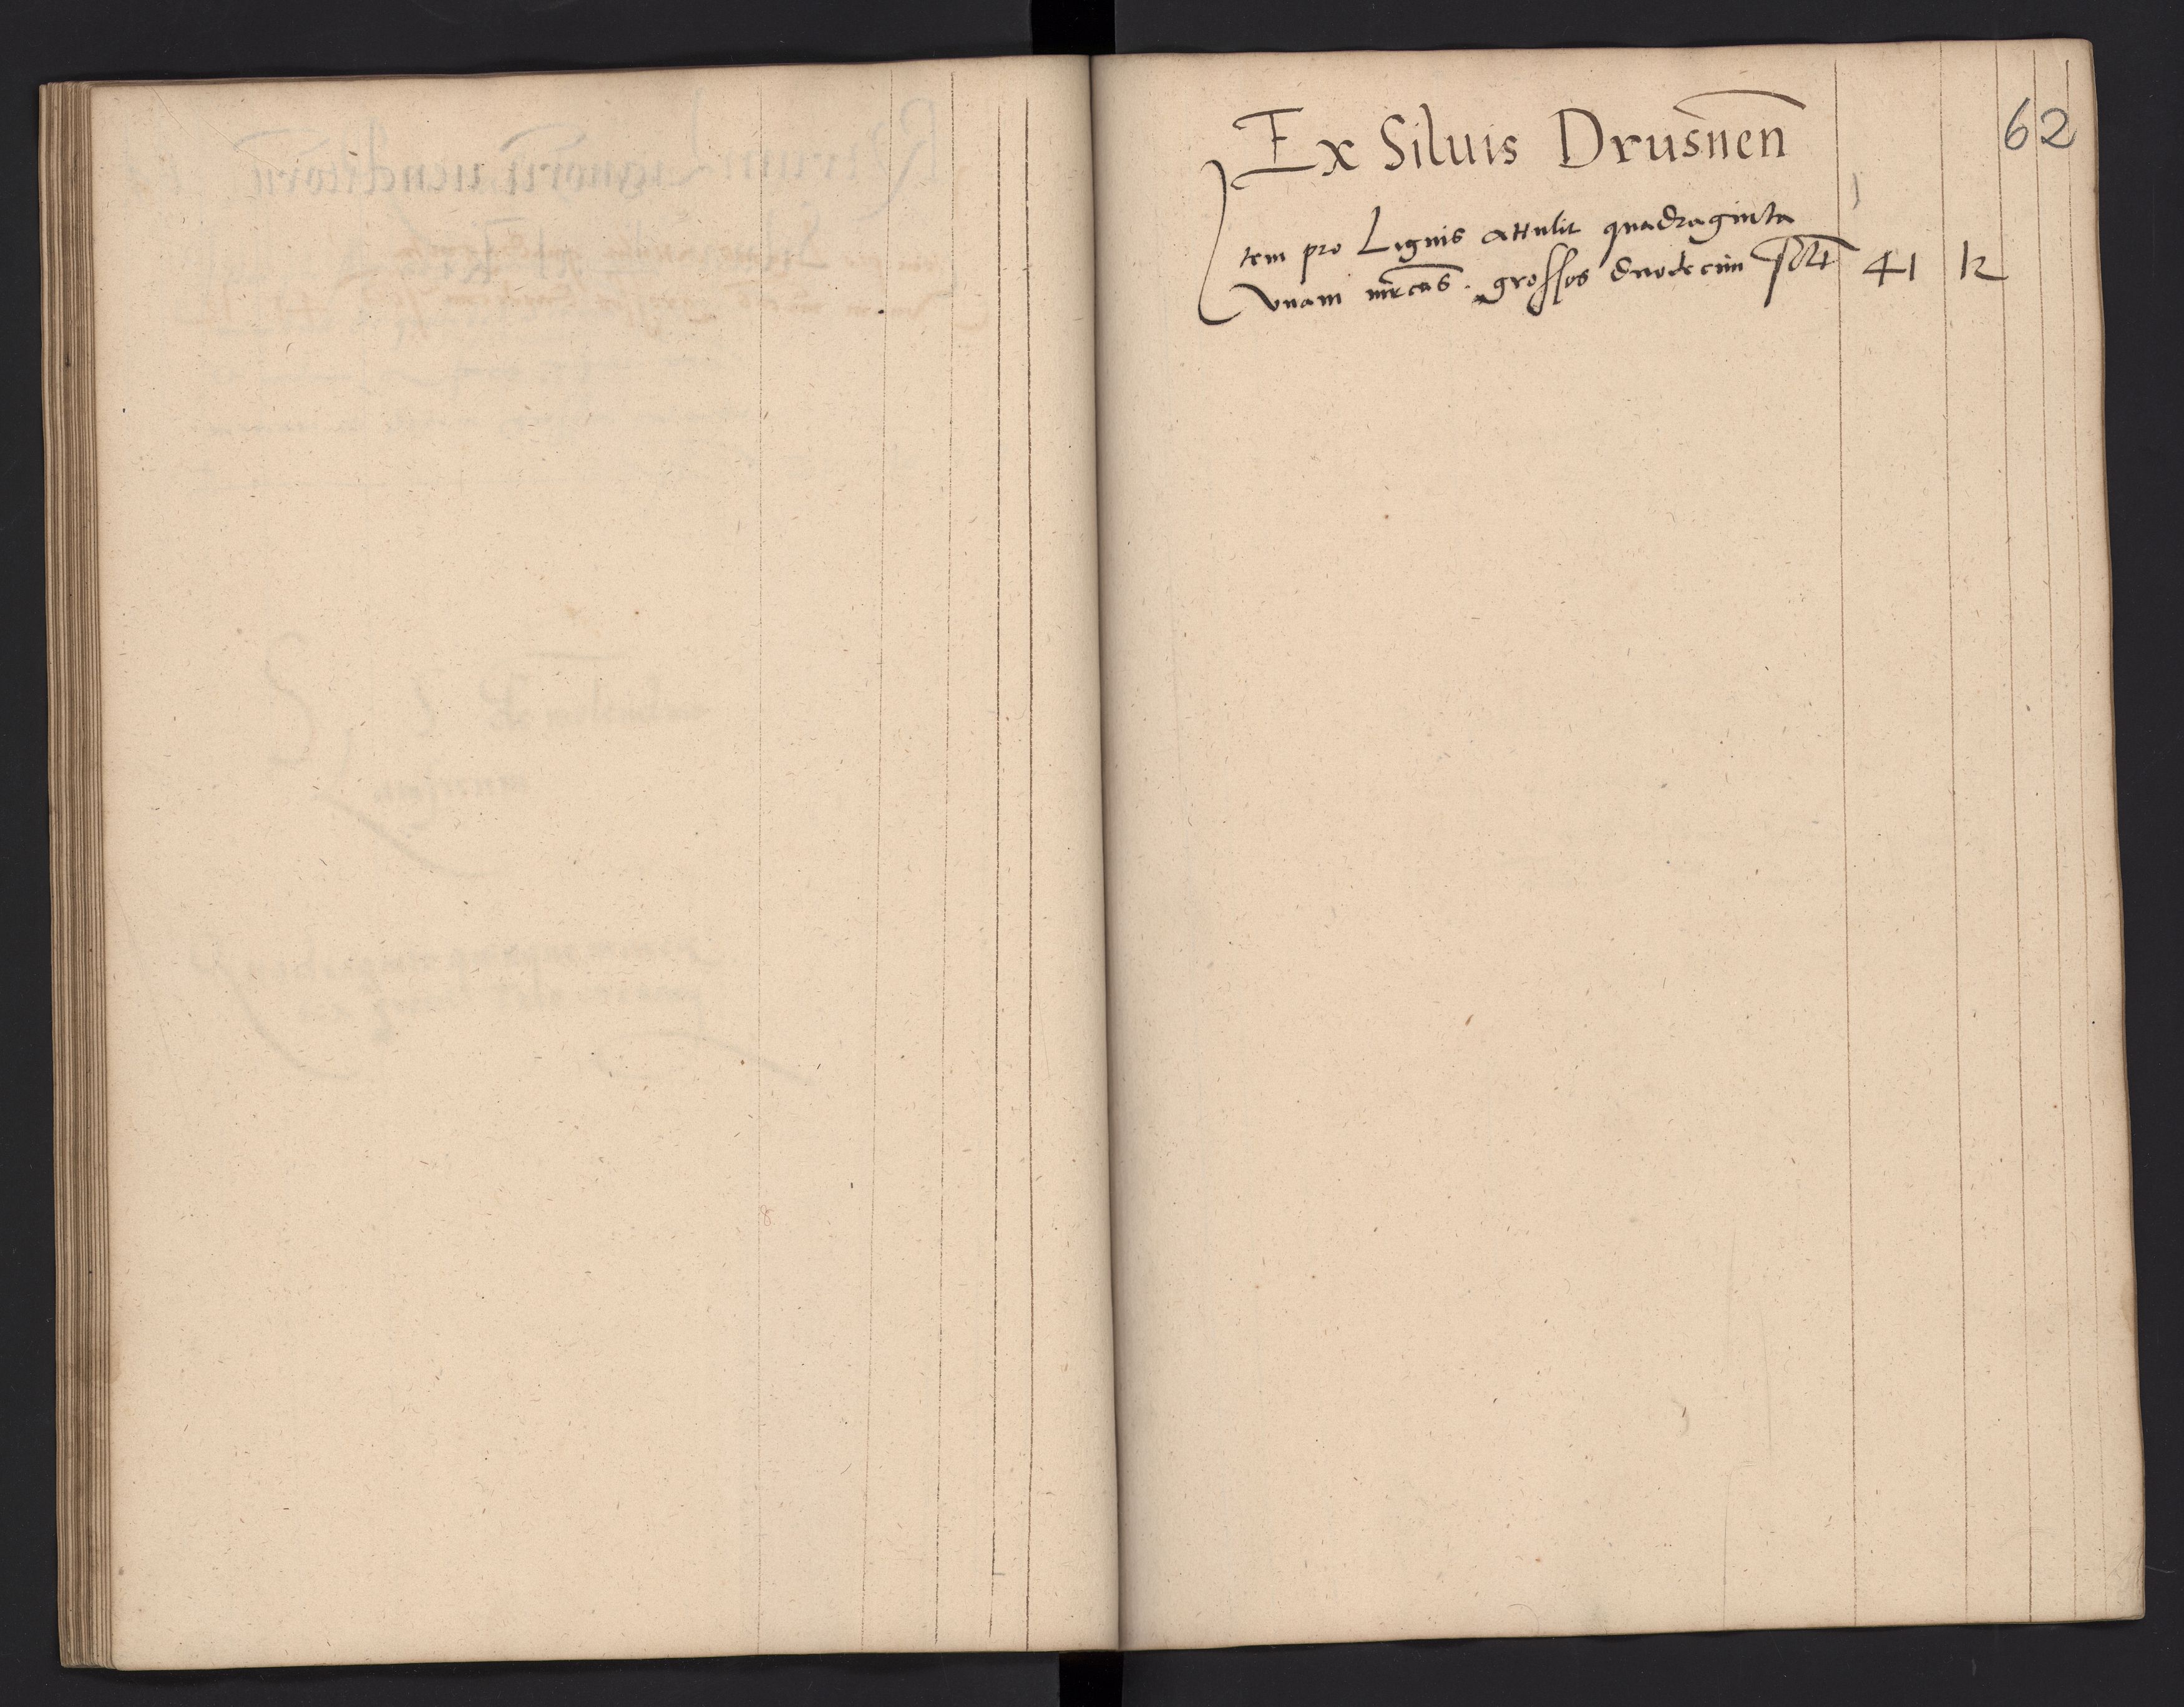 62
Ex Siluis Drusnen̄
Item pro Lignis attulit quadraginta
vnam mr̄cas . grossos duodecim 41 12